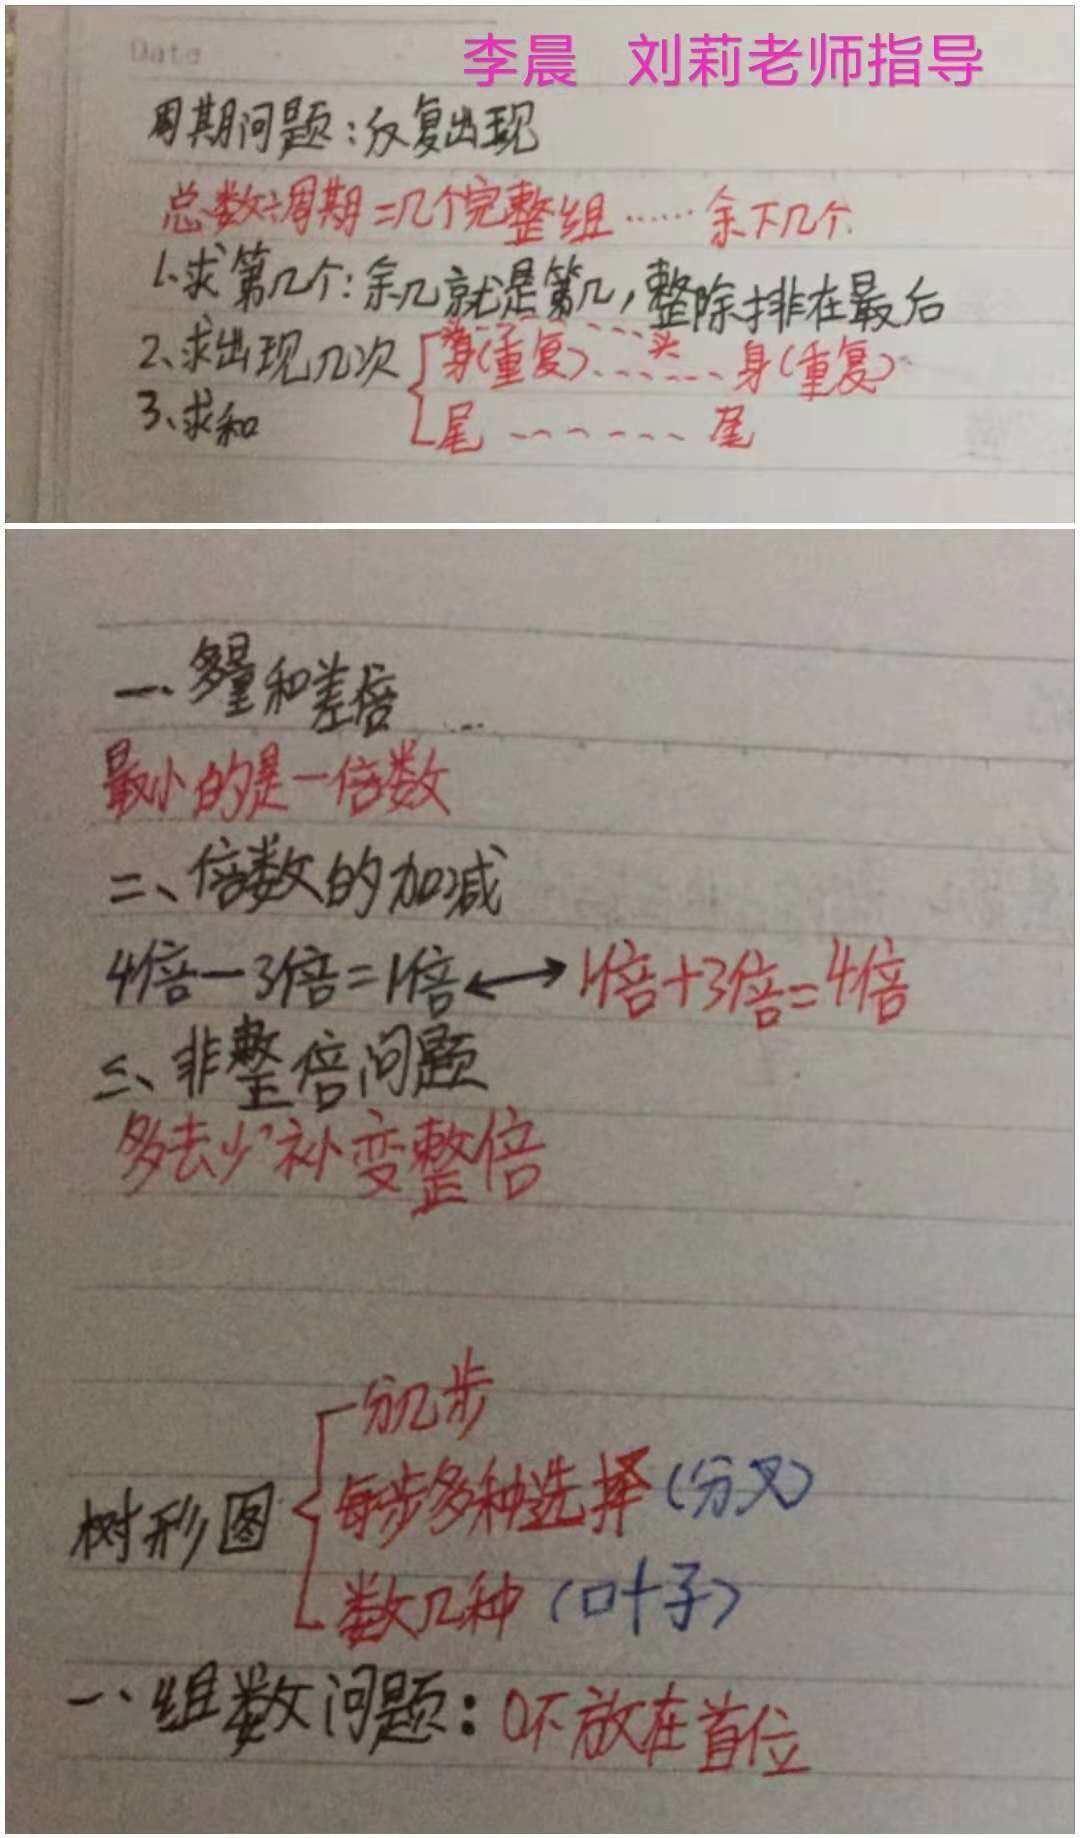 Date
李晨 刘莉老师指导
周期问题：反复出现
总数÷周期=几个完整组……余下几个
1、求第几个：余几就是第几，整除排在最后
2、求出现几次
头……头
身(重复)……身(重复)
3、求和
尾……尾
一、多量和差倍
最小的是一倍数
二、倍数的加减
4倍－3倍=1倍⟷1倍+3倍=4倍
三、非整倍问题
多去少补变整倍
分几步
树形图
每步多种选择（分叉）
数几种（叶子）
一、组数问题：0不放在首位